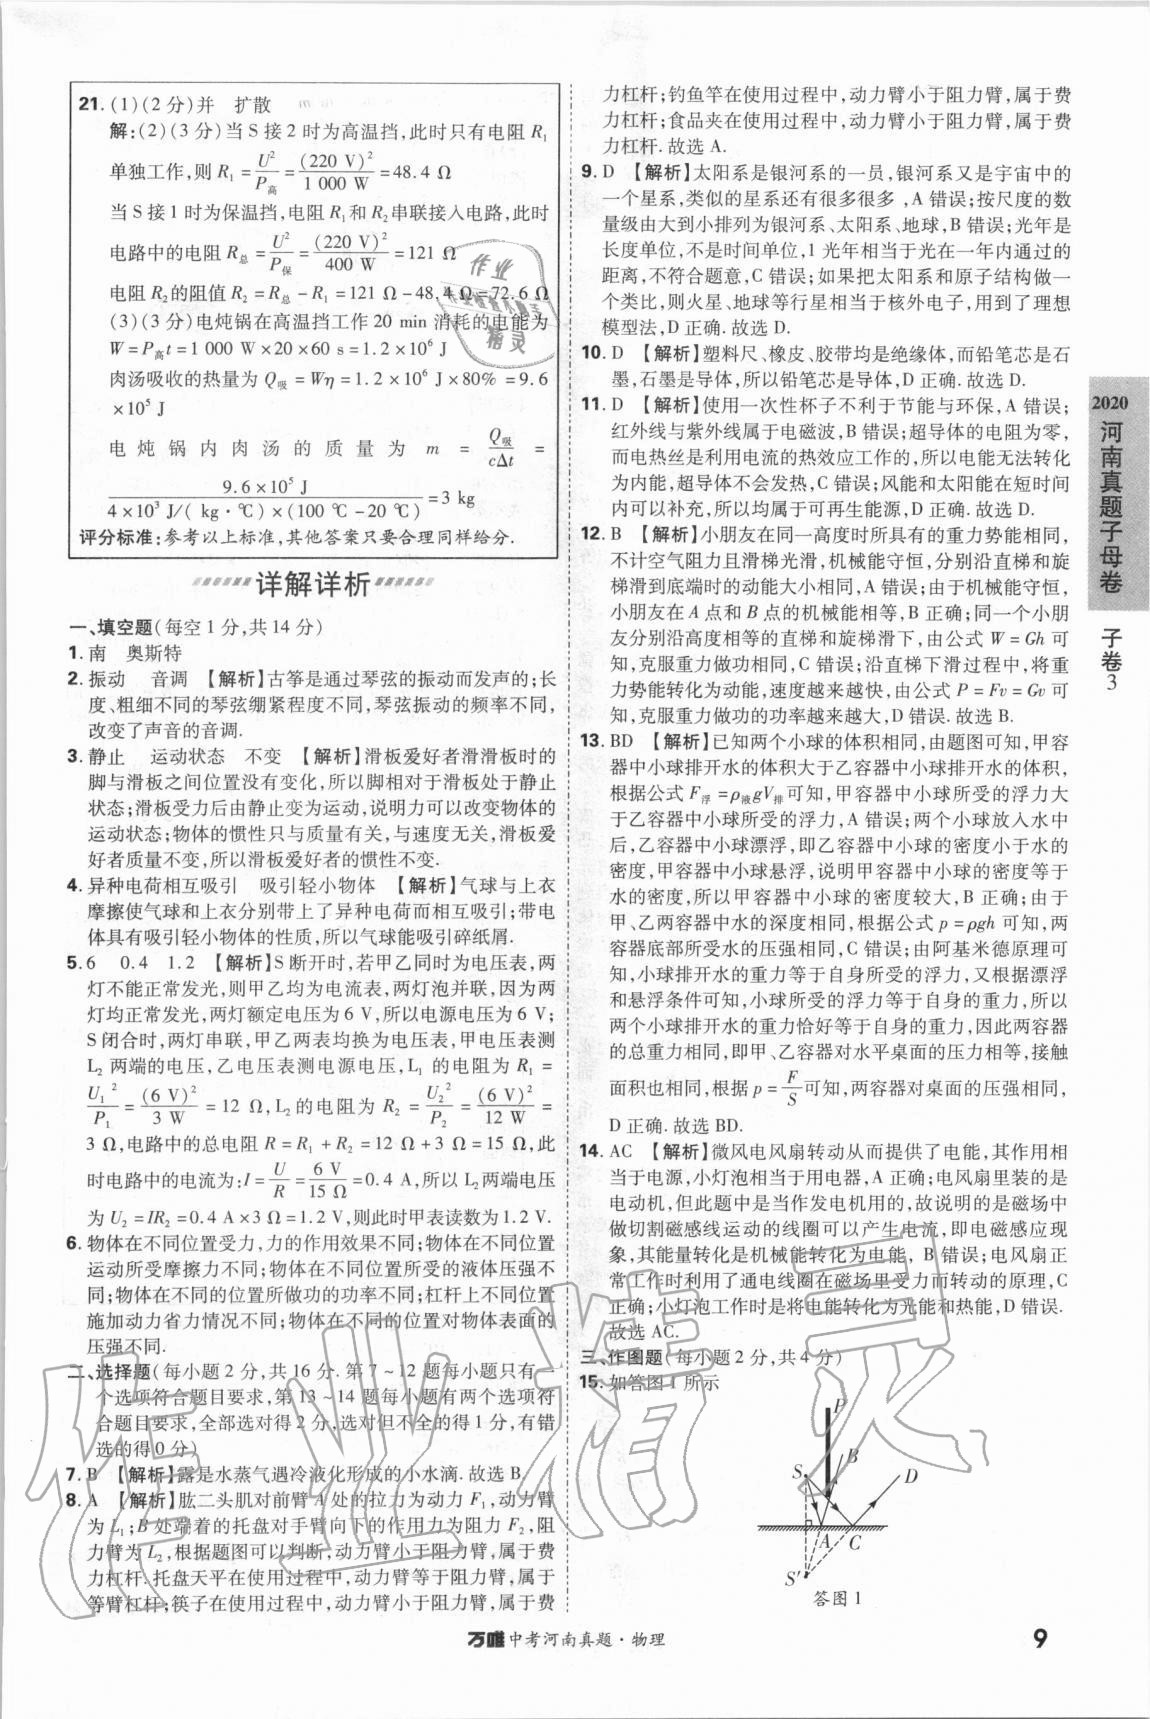 21. (1)(2分)并 扩散
解:(2)(3分)当S接2时为高温挡,此时只有电阻R₁
单独工作,则R₁=U²/P高=(220 V)²/1 000 W=48.4 Ω
当S接1时为保温挡,电阻R₁和R₂串联接入电路,此时
电路中的电阻R总=U²/P保=(220 V)²/400 W=121 Ω
电阻R₂的阻值R₂=R总-R₁=121 Ω-48.4 Ω=72.6 Ω
(3)(3分)电炖锅在高温挡工作20 min消耗的电能为
W=P高t=1 000 W×20×60 s=1.2×10⁶ J
肉汤吸收的热量为Q吸=Wη=1.2×10⁶ J×80%=9.6
×10⁵ J
电炖锅内肉汤的质量为m=Q吸/cΔt=
9.6×10⁵ J/4×10³ J/(kg·℃)×(100 ℃-20 ℃)=3 kg
评分标准:参考以上标准,其他答案只要合理同样给分.
详解详析
一、填空题(每空1分,共14分)
1. 南 奥斯特
2. 振动 音调 【解析】古筝是通过琴弦的振动而发声的;长
度、粗细不同的琴弦绷紧程度不同,琴弦振动的频率不同,
改变了声音的音调.
3. 静止 运动状态 不变 【解析】滑板爱好者滑滑板时的
脚与滑板之间位置没有变化,所以脚相对于滑板处于静止
状态;滑板受力后由静止变为运动,说明力可以改变物体的
运动状态;物体的惯性只与质量有关,与速度无关,滑板爱
好者质量不变,所以滑板爱好者的惯性不变.
4. 异种电荷相互吸引 吸引轻小物体 【解析】气球与上衣
摩擦使气球和上衣分别带上了异种电荷而相互吸引;带电
体具有吸引轻小物体的性质,所以气球能吸引碎纸屑.
5. 6 0.4 1.2 【解析】S断开时,若甲乙同时为电压表,两
灯不能正常发光,则甲乙均为电流表,两灯泡并联,因为两
灯均正常发光,两灯额定电压为6 V,所以电源电压为6 V;
S闭合时,两灯串联,甲乙两表均换为电压表,甲电压表测
L₂两端的电压,乙电压表测电源电压,L₁的电阻为R₁=
U₁²/P₁=(6 V)²/3 W=12 Ω,L₂的电阻为R₂=U₂²/P₂=(6 V)²/12 W=
3 Ω,电路中的总电阻R=R₁+R₂=12 Ω+3 Ω=15 Ω,此
时电路中的电流为:I=U/R=6 V/15 Ω=0.4 A,所以L₂两端电压
为U₂=IR₂=0.4 A×3 Ω=1.2 V,则此时甲表读数为1.2 V.
6. 物体在不同位置受力,力的作用效果不同;物体在不同位置
运动所受摩擦力不同;物体在不同位置所受的液体压强不
同;物体在不同的位置所做功的功率不同;杠杆上不同位置
施加动力省力情况不同;物体在不同的位置对物体表面的
压强不同.
二、选择题(每小题2分,共16分.第7~12题每小题只有一
个选项符合题目要求,第13~14题每小题有两个选项符
合题目要求,全部选对得2分,选对但不全的得1分,有错
选的得0分)
7. B 【解析】露是水蒸气遇冷液化形成的小水滴.故选B.
8. A 【解析】肱二头肌对前臂A处的拉力为动力F₁,动力臂
为L₁;B处端着的托盘对手臂向下的作用力为阻力F₂,阻
力臂为L₂,根据题图可以判断,动力臂小于阻力臂,属于费
力杠杆.托盘天平在使用过程中,动力臂等于阻力臂,属于
等臂杠杆;筷子在使用过程中,动力臂小于阻力臂,属于费
力杠杆;钓鱼竿在使用过程中,动力臂小于阻力臂,属于费
力杠杆;食品夹在使用过程中,动力臂小于阻力臂,属于费
力杠杆.故选A.
9. D 【解析】太阳系是银河系的一员,银河系又是宇宙中的
一个星系,类似的星系还有很多很多,A错误;按尺度的数
量级由大到小排列为银河系、太阳系、地球,B错误;光年是
长度单位,不是时间单位,1光年相当于光在一年内通过的
距离,不符合题意,C错误;如果把太阳系和原子结构做一
个类比,则火星、地球等行星相当于核外电子,用到了理想
模型法,D正确.故选D.
10. D 【解析】塑料尺、橡皮、胶带均是绝缘体,而铅笔芯是石
墨,石墨是导体,所以铅笔芯是导体,D正确.故选D.
11. D 【解析】使用一次性杯子不利于节能与环保,A错误;
红外线与紫外线属于电磁波,B错误;超导体的电阻为零,
而电热丝是利用电流的热效应工作的,所以电能无法转化
为内能,超导体不会发热,C错误;风能和太阳能在短时间
内可以补充,所以均属于可再生能源,D正确.故选D.
12. B 【解析】小朋友在同一高度时所具有的重力势能相同,
不计空气阻力且滑梯光滑,机械能守恒,分别沿直梯和旋
梯滑到底端时的动能大小相同,A错误;由于机械能守恒,
小朋友在A点和B点的机械能相等,B正确;同一个小朋
友分别沿高度相等的直梯和旋梯滑下,由公式W=Gh可
知,克服重力做功相同,C错误;沿直梯下滑过程中,将重
力势能转化为动能,速度越来越快,由公式P=Fv=Gv可
知,克服重力做功的功率越来越大,D错误.故选B.
13. BD 【解析】已知两个小球的体积相同,由题图可知,甲容
器中小球排开水的体积大于乙容器中小球排开水的体积,
根据公式F浮=ρ液gV排可知,甲容器中小球所受的浮力大
于乙容器中小球所受的浮力,A错误;两个小球放入水中
后,乙容器中小球漂浮,即乙容器中小球的密度小于水的
密度,甲容器中小球悬浮,说明甲容器中小球的密度等于
水的密度,所以甲容器中小球的密度较大,B正确;由于
甲、乙两容器中水的深度相同,根据公式p=ρgh可知,两
容器底部所受水的压强相同,C错误;由阿基米德原理可
知,小球排开水的重力等于自身所受的浮力,又根据漂浮
和悬浮条件可知,小球所受的浮力等于自身的重力,所以
两个小球排开水的重力恰好等于自身的重力,因此两容器
的总重力相同,即甲、乙容器对水平桌面的压力相等,接触
面积也相同,根据p=F/S可知,两容器对桌面的压强相同,
D正确.故选BD.
14. AC 【解析】微风电风扇转动从而提供了电能,其作用相
当于电源,小灯泡相当于用电器,A正确;电风扇里装的是
电动机,但此题中是当作发电机用的,故说明的是磁场中
做切割磁感线运动的线圈可以产生电流,即电磁感应现
象,其能量转化是机械能转化为电能,B错误;电风扇正
常工作时利用了通电线圈在磁场里受力而转动的原理,C
正确;小灯泡工作时是将电能转化为光能和热能,D错误.
故选AC.
三、作图题(每小题2分,共4分)
15. 如答图1所示
P
B
S
D
A
C
S′
答图1
2020
河南真题子母卷
子卷3
万唯中考河南真题·物理
9
作业
精灵
作业精灵